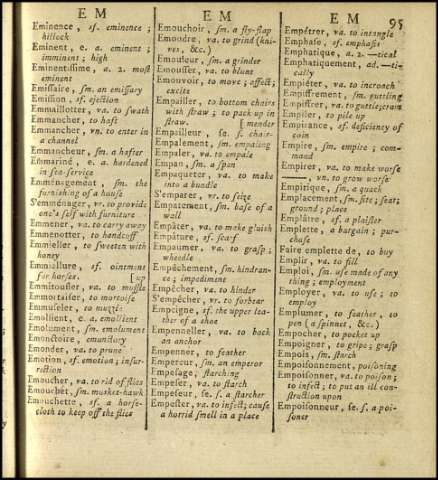 E M
Eminence, sf. eminence;
hillock
Eminent, e. a. eminent;
imminent; high
Eminentissime, a. 2. most
eminent
Emissaire, sm. an emissary
Emission, sf. ejection
Emmaillotter, va. to swath
Emmancher, to haft
Emmancher, vn. to enter in
a channel
Emmancheur, sm. a hafter
Emmariné, e. a. hardened
in sea-service
Emménagement, sm. the
furnishing of a house
S'emménager, vr. to provide
one's self with furniture
Emmener, va. to carry away
Emmenotter, to handcuff
Emmieller, to sweeten with
honey
Emmiellure, sf. ointment
for horses. [up
Emmitoufler, va. to muffle
Emmortaiser, to mortoise
Emmuseler, to muzzle
Emollient, e. a. emollient
Emolument, sm. emolument
Emonctoire, emunctory
Emonder, va. to prune
Emotion, sf. emotion; insur-
rection
Emoucher, va. to rid of flies
Emouchet, sm. musket-hawk
Emouchette, sf. a horse-
cloth to keep off the flies
E M
Emouchoir, sm. a fly-flap
Emoudre, va. to grind (kni-
ves, &c.)
Emouleur, sm. a grinder
Emousser, va. to blunt
Emouvoir, to move; affect;
excite
Empailler, to bottom chairs
with straw; to pack up in
straw. [mender
Empailleur, se. s. chair-
Empalement, sm. empaling
Empaler, va. to empale
Empan, sm. a span
Empaqueter, va. to make
into a bundle
S'emparer, vr. to seize
Empatement, sm. base of a
wall
Empâter, va. to make gluish
Empâture, sf. scarf
Empaumer, va. to grasp;
wheedle
Empêchement, sm. hindran-
ce; impediment
Empêcher, va. to hinder
S'empêcher, vr. to forbear
Empeigne, sf. the upper lea-
ther of a shoe
Empenneller, va. to back
an anchor
Empenner, to feather
Empereur, sm. an emperor
Empesage, starching
Empeser, va. to starch
Empeseur, se. s. a starcher
Empester, va. to infect; cause
a horrid smell in a place
E M
95
Empétrer, va. to intangle
Emphase, sf. emphasis
Emphatique, a. 2. —tical
Emphatiquement, ad. —ti-
cally
Empiéter, va. to incroach
Empiffrement, sm. guttling
Empiffrer, va. to guttle; cram
Empiler, to pile up
Empirance, sf. deficiency of
coin
Empire, sm. empire; com-
mand
Empirer, va. to make worse
——, va. to grow worse
Empirique, sm. a quack
Emplacement, sm. site; seat;
ground; place
Emplâtre, sf. a plaister
Emplette, a bargain; pur-
chase
Faire emplette de, to buy
Emplir, va. to fill
Emploi, sm. use made of any
thing; employment
Employer, va. to use; to
employ
Emplumer, to feather, to
pen (a spinnet, &c.)
Empocher, to pocket up
Empoigner, to gripe; grasp
Empois, sm. starch
Empoisonnement, poisoning
Empoisonner, va. to poison;
to infect; to put an ill con-
struction upon
Empoisonneur, se. s. a poi-
soner